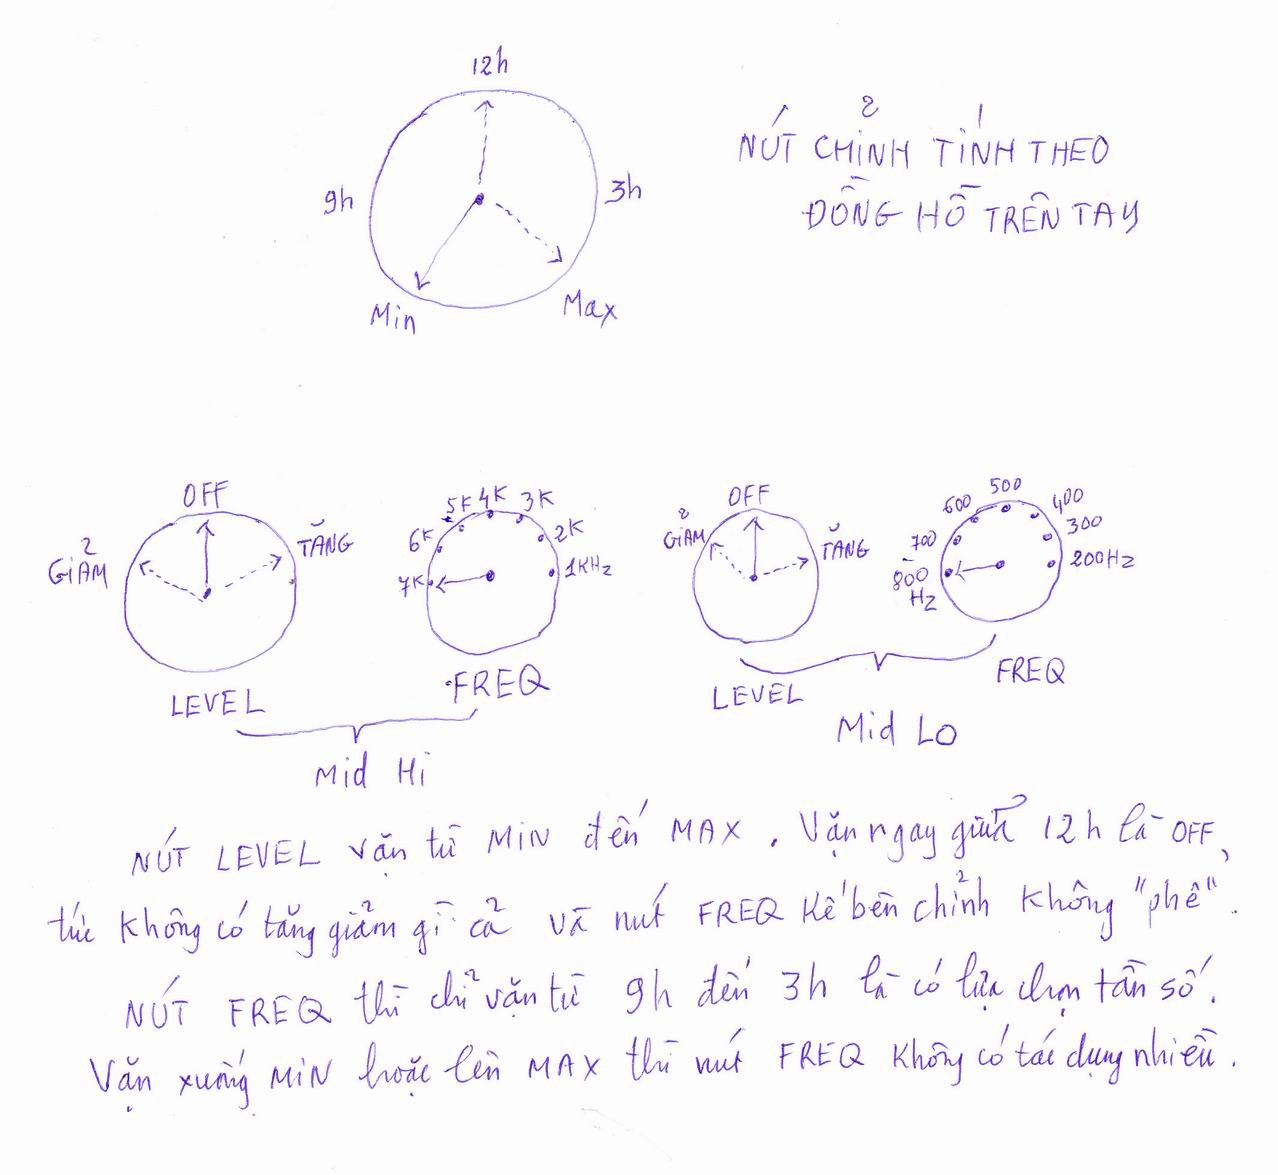 12h
9h
3h
Min
Max
NÚT CHỈNH TÍNH THEO
ĐỒNG HỒ TRÊN TAY
OFF
GIẢM
TĂNG
LEVEL
7K
6K
5K
4K
3K
2K
1KHz
FREQ
Mid Hi
OFF
GIẢM
TĂNG
LEVEL
800
HZ
700
600
500
400
300
200HZ
FREQ
Mid LO
NÚT LEVEL vặn từ MIN đến MAX. Vặn ngay giữa 12h là OFF,
tức không có tăng giảm gì cả và nút FREQ kế bên chỉnh không "phê".
NÚT FREQ thì chỉ vặn từ 9h đến 3h là có lựa chọn tần số.
Vặn xuống MIN hoặc lên MAX thì nút FREQ không có tác dụng nhiều.